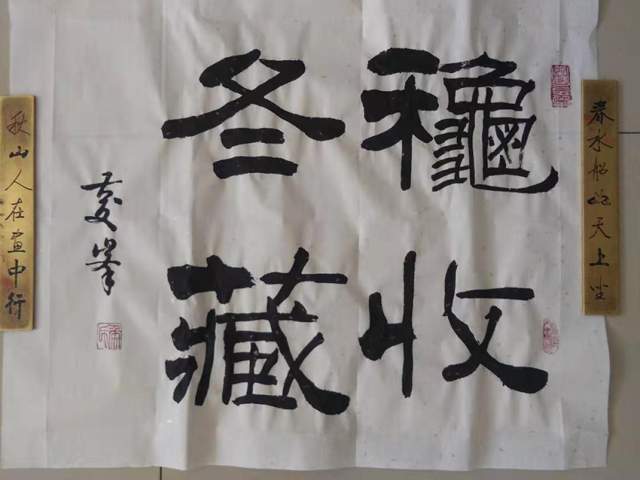 春水船如天上坐
龝收
冬藏
慶峯
秋山人在畫中行